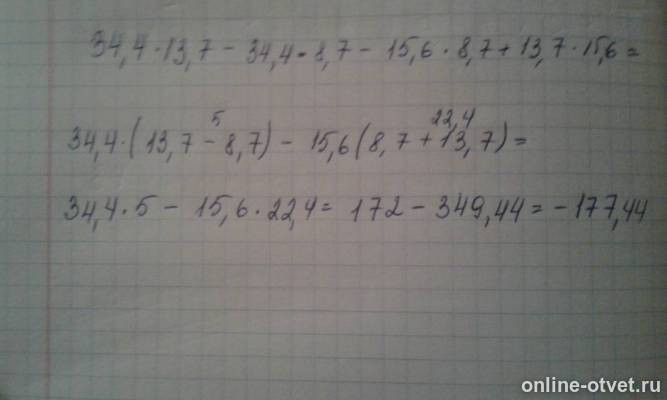 34,4·13,7 - 34,4·8,7 - 15,6·8,7 + 13,7·15,6 =
5 22,4
34,4·(13,7 - 8,7) - 15,6(8,7 + 13,7) =
34,4·5 - 15,6·22,4 = 172 - 349,44 = -177,44
online-otvet.ru